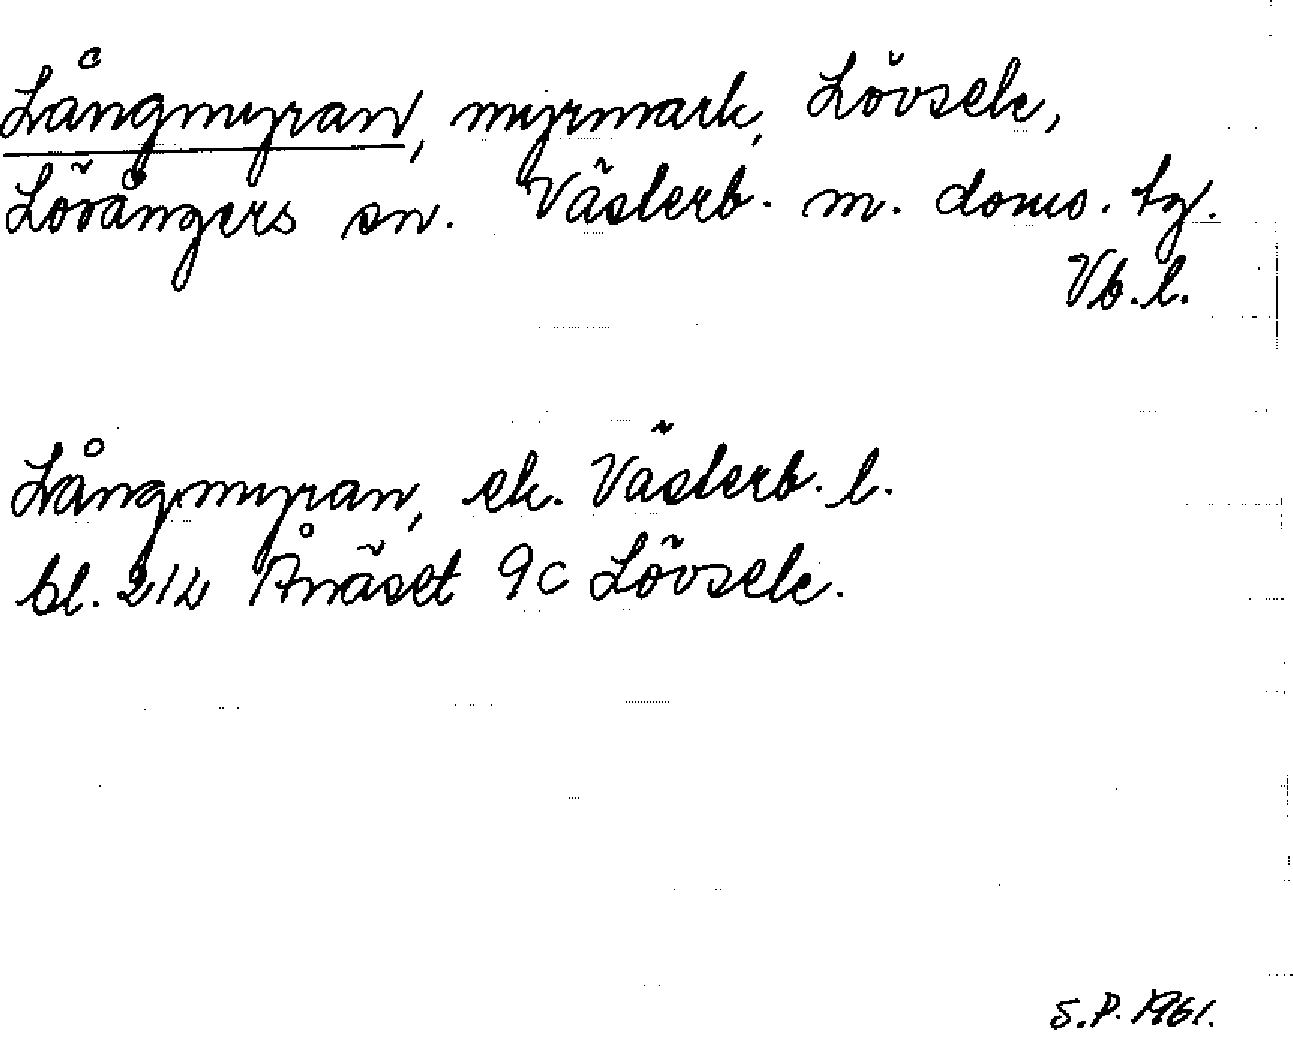 Långmyran, myrmark, Lövsele,
Lövångers sn. Västerb. m. doms. tg.
Vb. l.
Långmyran, ek. Västerb. l.
bl. 214 Ånäset 9c Lövsele.
S.P. 1961.